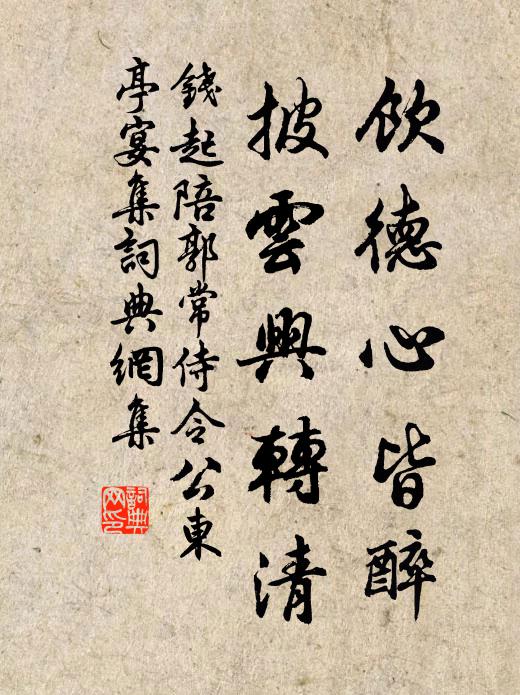 飲德心皆醉
披雲興轉清
錢起陪郭常侍令公東
亭宴集詞典網集
詞典
网印